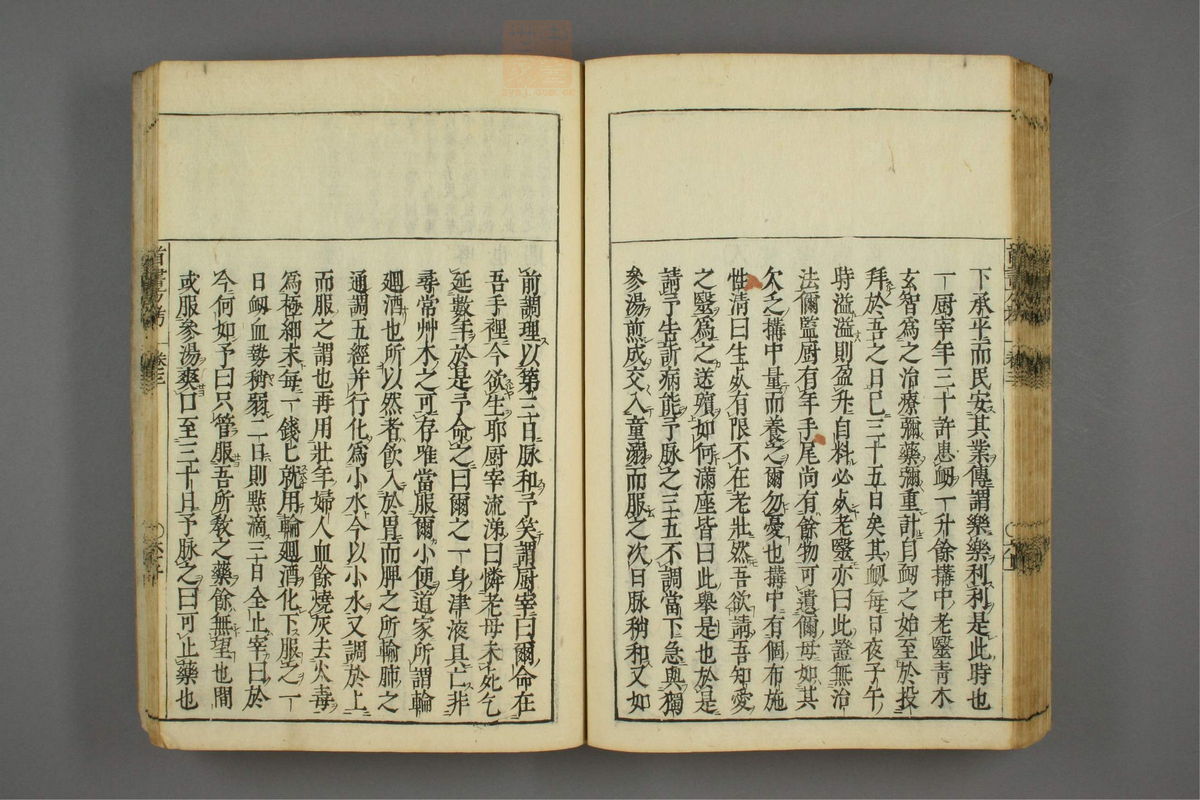 下承平而民安其業傳謂樂樂利利是此時也
一厨宰年三十許患衂一升餘搆中老醫青木
玄智爲之治療彌藥彌重計自衂之始至於投
拜於吾之日已三十五日矣其衂每日夜子午
時溢溢則盈升自料必死老醫亦曰此證無治
法儞監厨有年手尾尚有餘物可遺儞母如其
欠乏搆中量而養之爾勿憂也搆中有個布施
性清曰生死有限不在老壯然吾欲請吾知愛
之醫爲之送殯如何滿座皆曰此擧是也於是
請予告訴病能予脉之三五不調當下急與獨
參湯煎成交入童溺而服之次日脉稍和又如
前調理以第三日脉和予笑謂厨宰曰爾命在
吾手裡今欲生耶厨宰流涕曰憐老母未死乞
延數年於是予命之曰爾之一身津液具亡非
尋常艸木之可存唯當服爾小便道家所謂輪
廻酒也所以然者飲入於胃而脾之所輸肺之
通調五經并行化爲小水今以小水又調於上
而服之謂也再用壯年婦人血餘燒灰去火毒
爲極細末每一錢匕就用輪廻酒化下服之一
日衂血勢稍弱二日則點滴三日全止宰曰於
今何如予曰只管服吾所敎之藥餘無望也間
或服參湯爽口至三十日予脉之曰可止藥也
首書
卷三